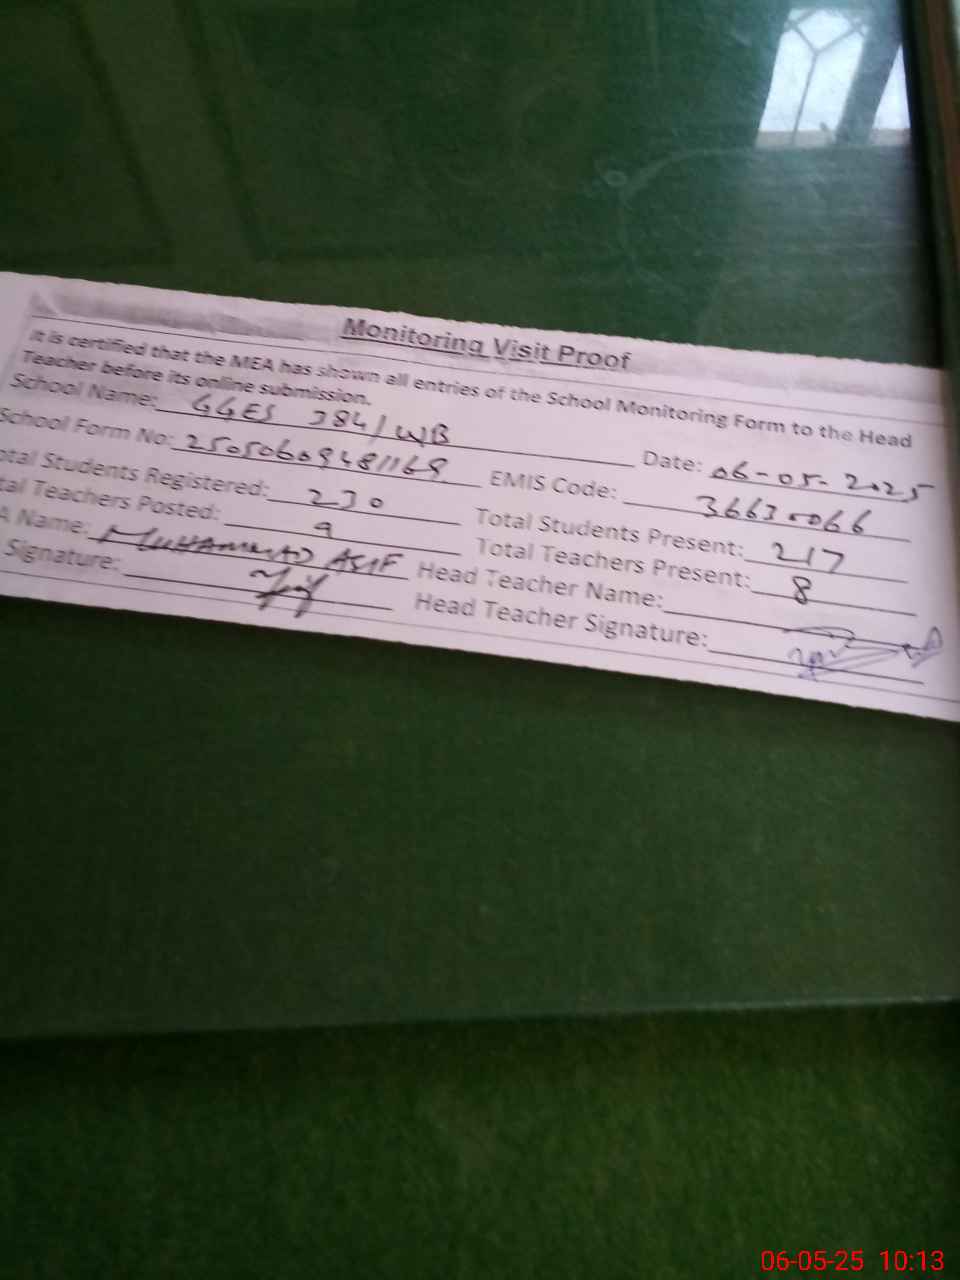 Monitoring Visit Proof
It is certified that the MEA has shown all entries of the School Monitoring Form to the Head
Teacher before its online submission.
School Name: GGES 384/WB Date: 06-05-2025
School Form No: 2505060948116 EMIS Code: 36630066
otal Students Registered: 230 Total Students Present: 217
tal Teachers Posted: 9 Total Teachers Present: 8
A Name: MUHAMMAD ASIF Head Teacher Name:
Signature: Head Teacher Signature:
06-05-25 10:13